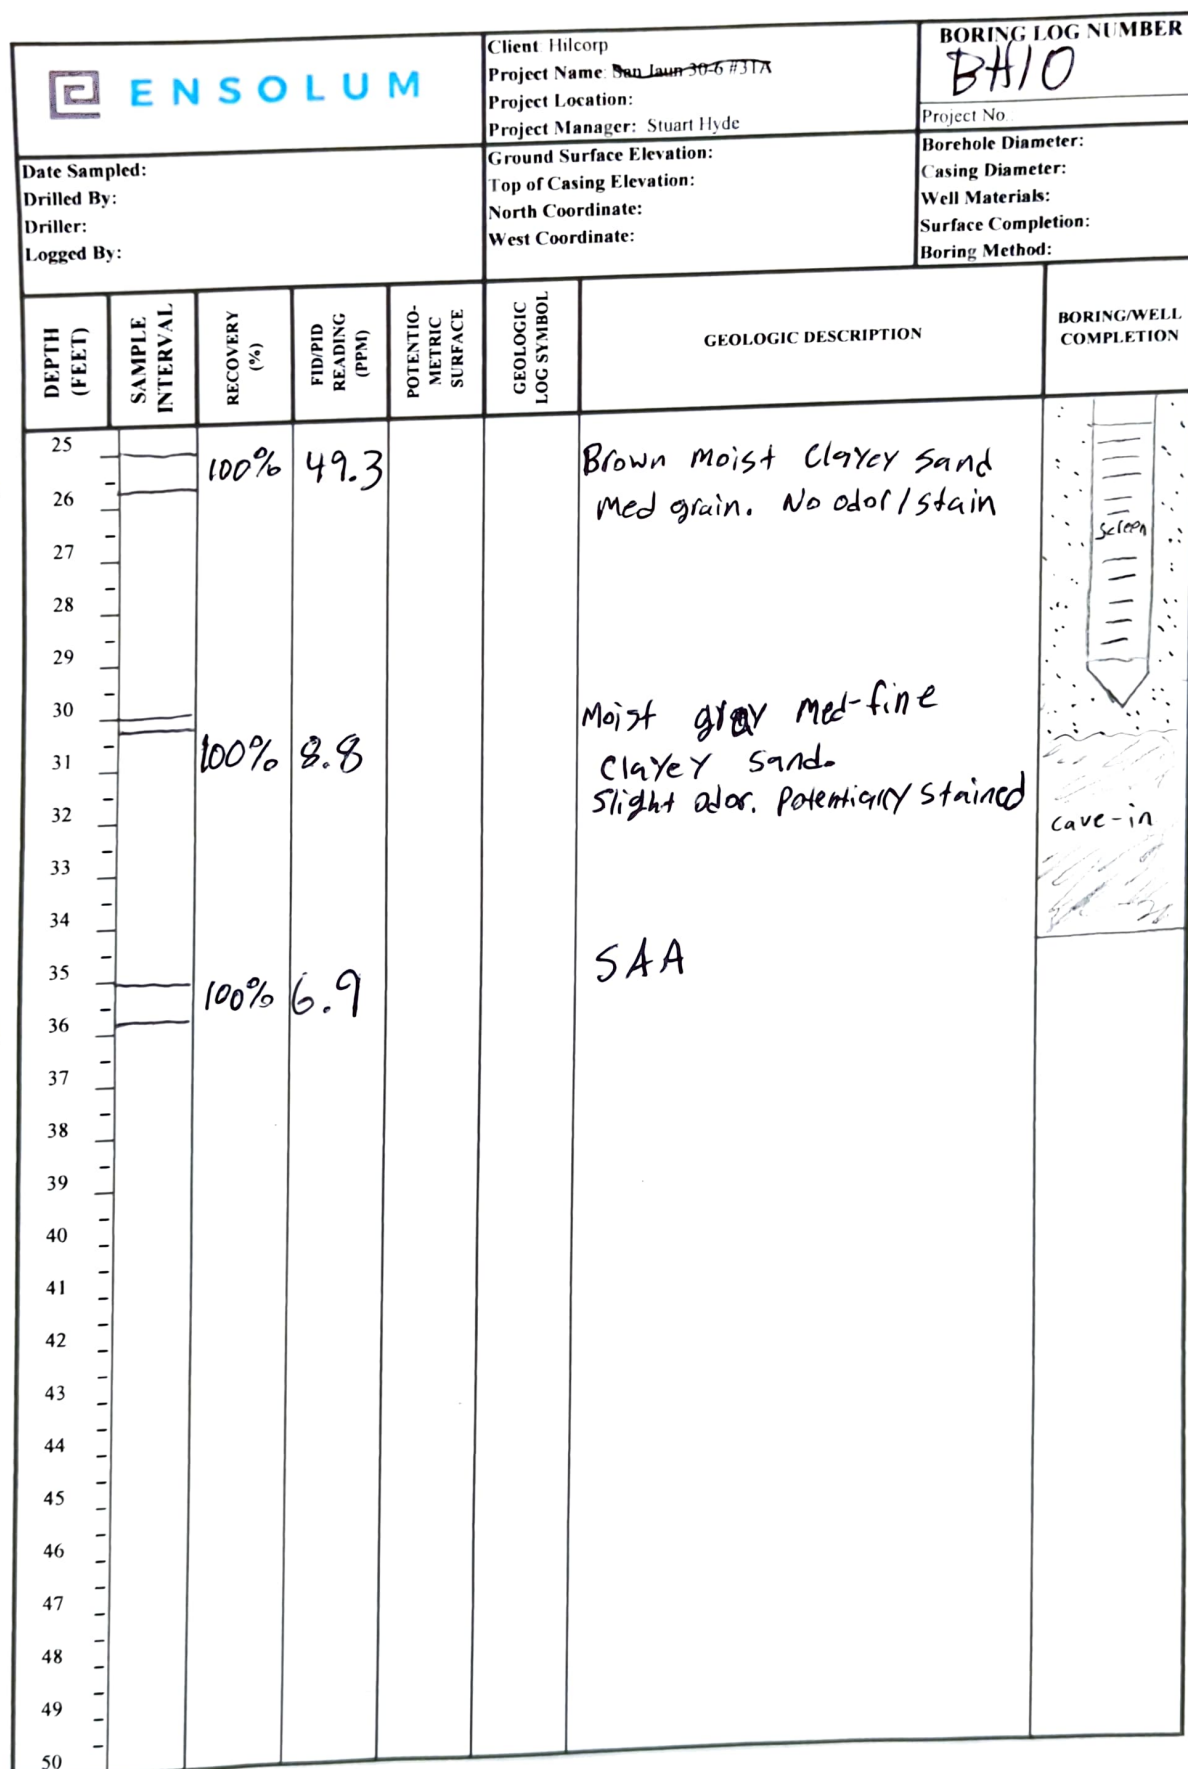 ENSOLUM
Client: Hilcorp
Project Name: San Jaun 30-6 #31A
Project Location:
Project Manager: Stuart Hyde
BORING LOG NUMBER
BH10
Project No.
Date Sampled:
Drilled By:
Driller:
Logged By:
Ground Surface Elevation:
Top of Casing Elevation:
North Coordinate:
West Coordinate:
Borehole Diameter:
Casing Diameter:
Well Materials:
Surface Completion:
Boring Method:
DEPTH
(FEET)
SAMPLE
INTERVAL
RECOVERY
(%)
FID/PID
READING
(PPM)
POTENTIO-
METRIC
SURFACE
GEOLOGIC
LOG SYMBOL
GEOLOGIC DESCRIPTION
BORING/WELL
COMPLETION
25
100% 49.3 Brown moist Clayey sand
26
Med grain. No odor/stain
screen
27
28
29
30
Moist gray med-fine
31
100% 8.8 clayey sand.
Slight odor. Potentially stained
32
cave-in
33
34
35
SAA
100% 6.9
36
37
38
39
40
41
42
43
44
45
46
47
48
49
50